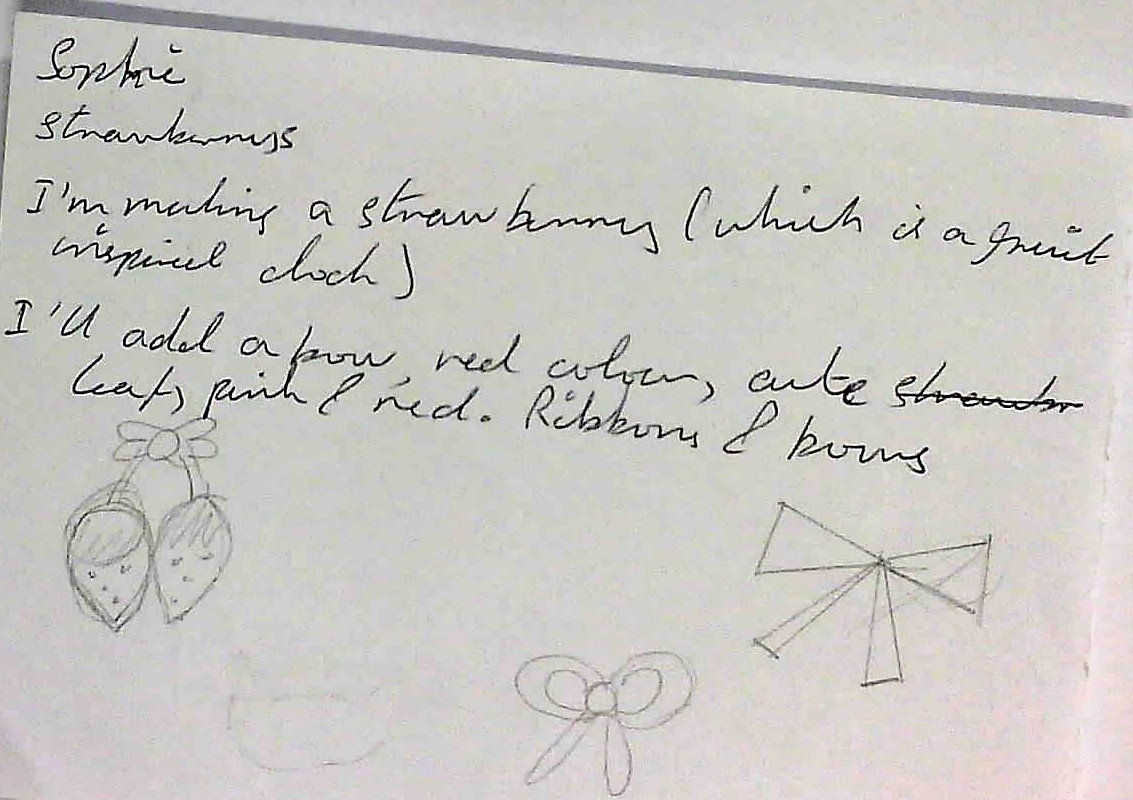 Sophie
strawberrys
I'm making a strawberry (which is a fruit
inspired clock)
I'll add a bow, red colour, cute strawbr
leaf, pink & red. Ribbons & bows